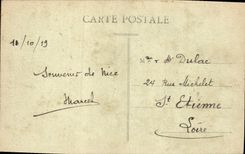 CARTE POSTALE
18/10/19
Mme & Mr Dulac
Souvenir de Nice
24 Rue Michelet
Marcel
St Etienne
Loire